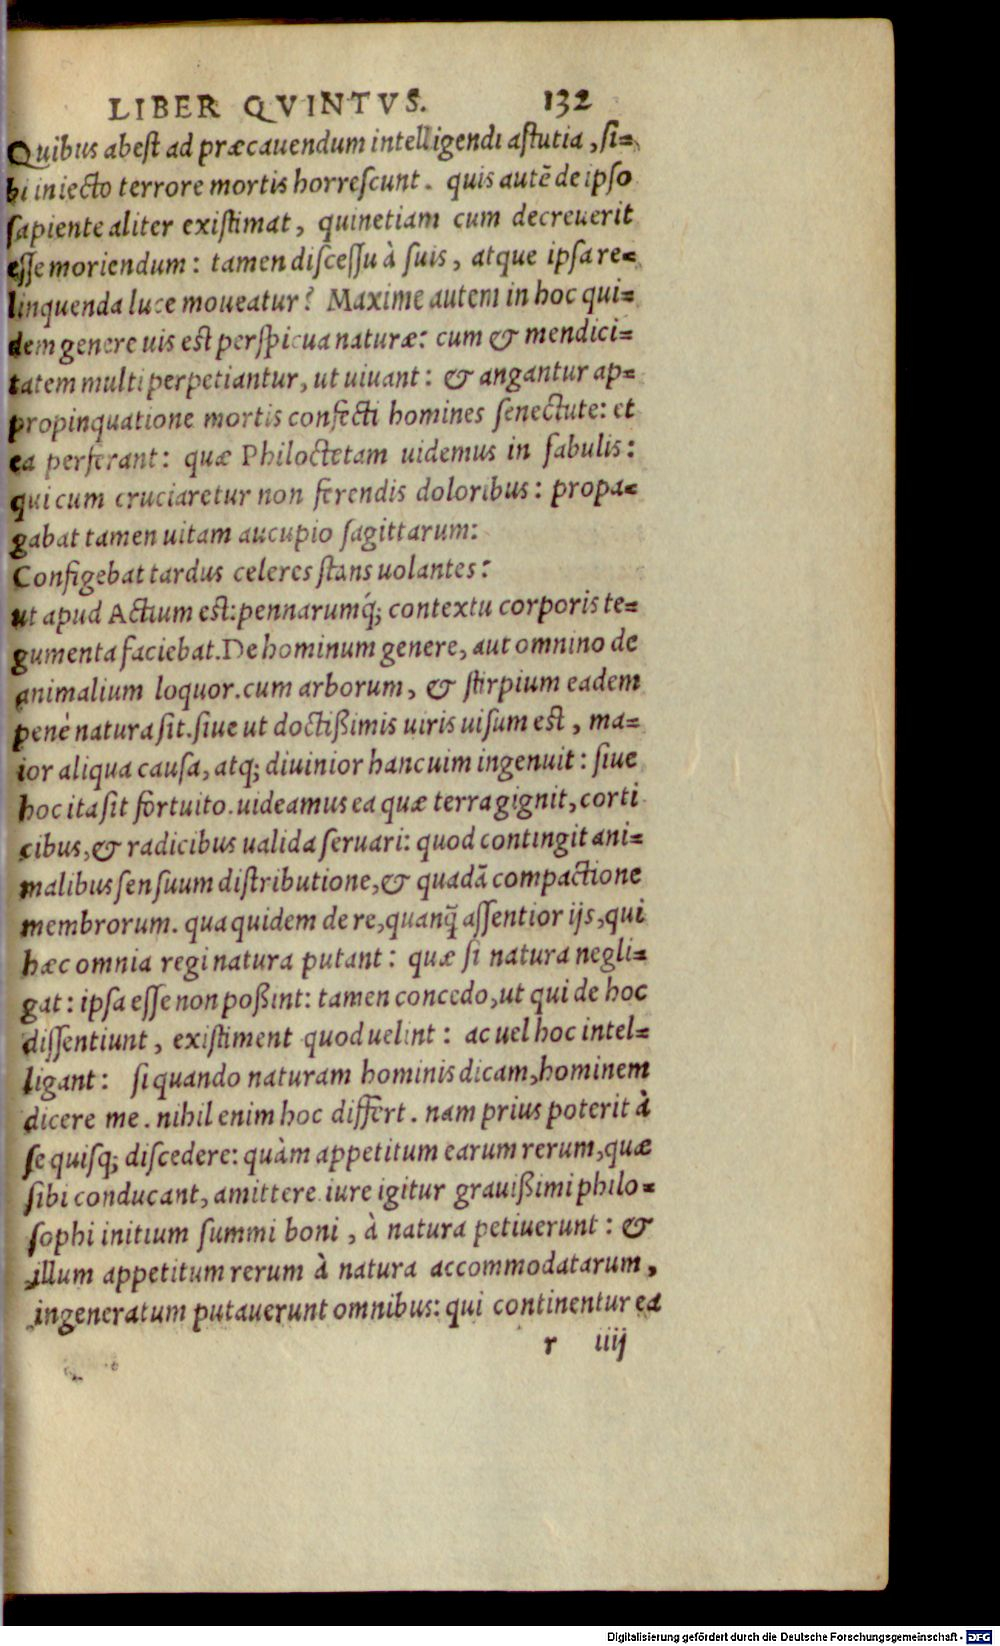 LIBER QVINTVS. 132
Quibus abest ad præcauendum intelligendi astutia, si=
bi iniecto terrore mortis horrescunt. quis autē de ipso
sapiente aliter existimat, quinetiam cum decreuerit
esse moriendum: tamen discessu à suis, atque ipsa re=
linquenda luce moueatur? Maxime autem in hoc qui=
dem genere uis est perspicua naturæ: cum & mendici=
tatem multi perpetiantur, ut uiuant: & angantur ap=
propinquatione mortis confecti homines senectute: et
ea perferant: quæ Philoctetam uidemus in fabulis:
qui cum cruciaretur non ferendis doloribus: propa=
gabat tamen uitam aucupio sagittarum:
Configebat tardus celeres stans uolantes:
ut apud Actium est: pennarumq́; contextu corporis te=
gumenta faciebat. De hominum genere, aut omnino de
animalium loquor. cum arborum, & stirpium eadem
penè natura sit. siue ut doctißimis uiris uisum est, ma=
ior aliqua causa, atq; diuinior hanc uim ingenuit: siue
hoc ita sit fortuito. uideamus ea quæ terra gignit, corti
cibus, & radicibus ualida seruari: quod contingit ani=
malibus sensuum distributione, & quadā compactione
membrorum. qua quidem de re, quanq̄ assentior ijs, qui
hæc omnia regi natura putant: quæ si natura negli=
gat: ipsa esse non poßint: tamen concedo, ut qui de hoc
dissentiunt, existiment quod uelint: ac uel hoc intel=
ligant: si quando naturam hominis dicam, hominem
dicere me. nihil enim hoc differt. nam prius poterit à
se quisq; discedere: quàm appetitum earum rerum, quæ
sibi conducant, amittere. iure igitur grauißimi philo=
sophi initium summi boni, à natura petiuerunt: &
illum appetitum rerum à natura accommodatarum,
ingeneratum putauerunt omnibus: qui continentur ea
r iiij
Digitalisierung gefördert durch die Deutsche Forschungsgemeinschaft - DFG